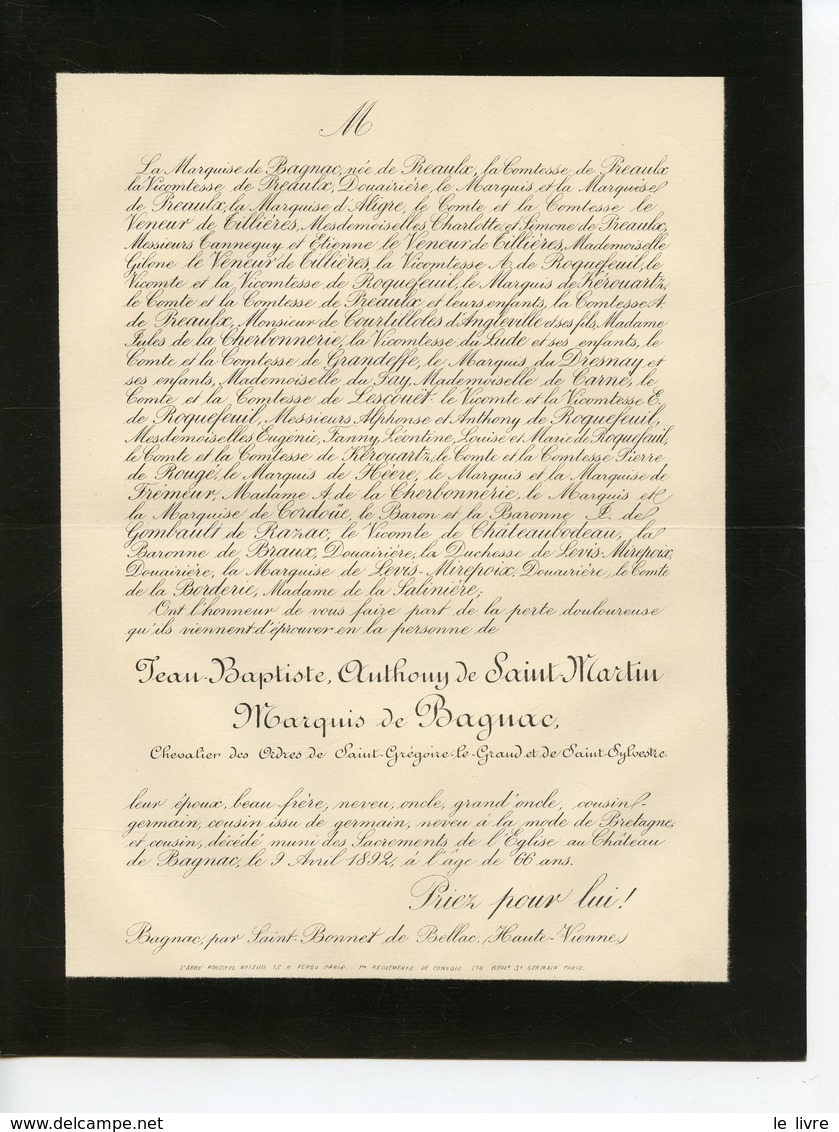 M
La Marquise de Bagnac, née de Preaulx, la Comtesse de Preaulx
la Vicomtesse de Preaulx, Douairière, le Marquis et la Marquise
de Preaulx, la Marquise d'Aligre, le Comte et la Comtesse le
Veneur de Tillières, Mesdemoiselles Charlotte et Simone de Preaulx,
Messieurs Tanneguy et Etienne le Veneur de Tillières, Mademoiselle
Gilone le Veneur de Tillières, la Vicomtesse A. de Roquefeuil, le
Vicomte et la Vicomtesse de Roquefeuil, le Marquis de Kérouartz,
le Comte et la Comtesse de Preaulx et leurs enfants, la Comtesse A.
de Preaulx, Monsieur de Courtilloles d'Angleville et ses fils, Madame
Jules de la Cherbonnerie, la Vicomtesse du Lude et ses enfants, le
Comte et la Comtesse de Grandeffe, le Marquis du Dresnay et
ses enfants, Mademoiselle du Fay, Mademoiselle de Carné, le
Comte et la Comtesse de Lescouët, le Vicomte et la Vicomtesse E.
de Roquefeuil, Messieurs Alphonse et Anthony de Roquefeuil,
Mesdemoiselles Eugénie, Fanny, Léontine, Louise et Marie de Roquefeuil,
le Comte et la Comtesse de Kérouartz, le Comte et la Comtesse Pierre
de Rougé, le Marquis de Héere, le Marquis et la Marquise de
Frémeur, Madame A. de la Cherbonnerie, le Marquis et
la Marquise de Cordoüe, le Baron et la Baronne F. de
Gombault de Razac, le Vicomte de Châteaubodeau, la
Baronne de Braux, Douairière, la Duchesse de Levis-Mirepoix,
Douairière, la Marquise de Levis-Mirepoix, Douairière, le Comte
de la Borderie, Madame de la Salinière;
Ont l'honneur de vous faire part de la perte douloureuse
qu'ils viennent d'éprouver en la personne de
Jean-Baptiste, Anthony de Saint-Martin
Marquis de Bagnac,
Chevalier des Ordres de Saint-Grégoire-le-Grand et de Saint-Sylvestre.
leur époux, beau-frère, neveu, oncle, grand'oncle, cousin-
germain, cousin issu de germain, neveu à la mode de Bretagne,
et cousin, décédé muni des Sacrements de l'Eglise au Château
de Bagnac, le 9 Avril 1892, à l'âge de 66 ans.
Priez pour lui!
Bagnac, par Saint-Bonnet de Bellac, (Haute-Vienne)
L'ABBÉ ROUSSEL AUTEUIL ET R. FEROU PARIS. RÈGLEMENTS DE CONVOIS 170 BOULD ST GERMAIN PARIS.
le livre